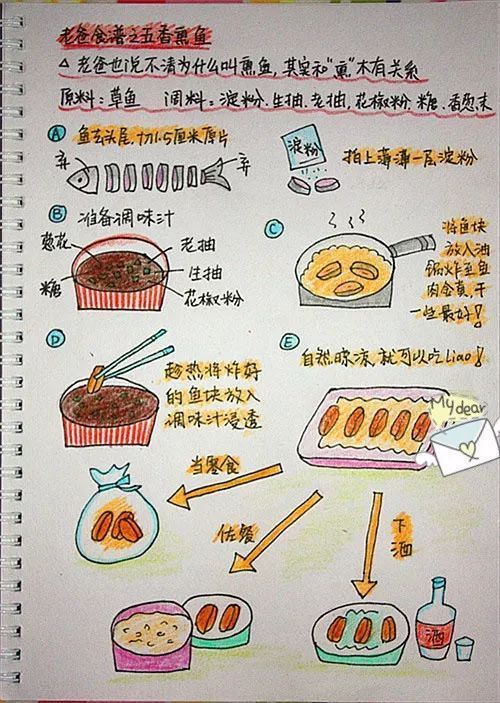 老爸食谱之五香熏鱼
△老爸也说不清为什么叫熏鱼,其实和"熏"木有关系
原料:草鱼 调料:淀粉.生抽.老抽,花椒粉.糖.香葱末
A 鱼去头尾,切1.5厘米厚片
弃
弃
淀粉
拍上薄薄一层淀粉
B 准备调味汁
葱花
糖
老抽
生抽
花椒粉
C
将鱼块
放入油
锅炸至鱼
肉金黄,干
一些最好!
D
趁热将炸好
的鱼块放入
调味汁浸透
E
自然晾凉,就可以吃Liao!
My dear
当零食
佐餐
下
酒
酒